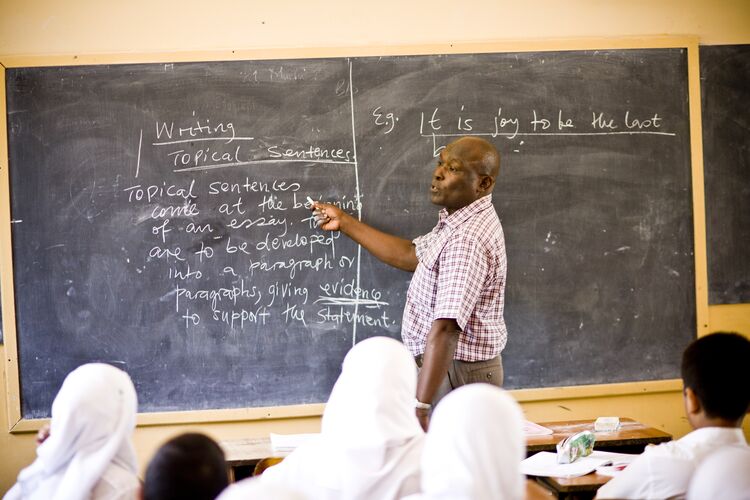 Writing
Topical Sentences
Topical sentences
come at the beginning
of an essay.
are to be developed
into a paragraph or
paragraphs, giving evidence
to support the statement.
E.g. It is joy to be the last